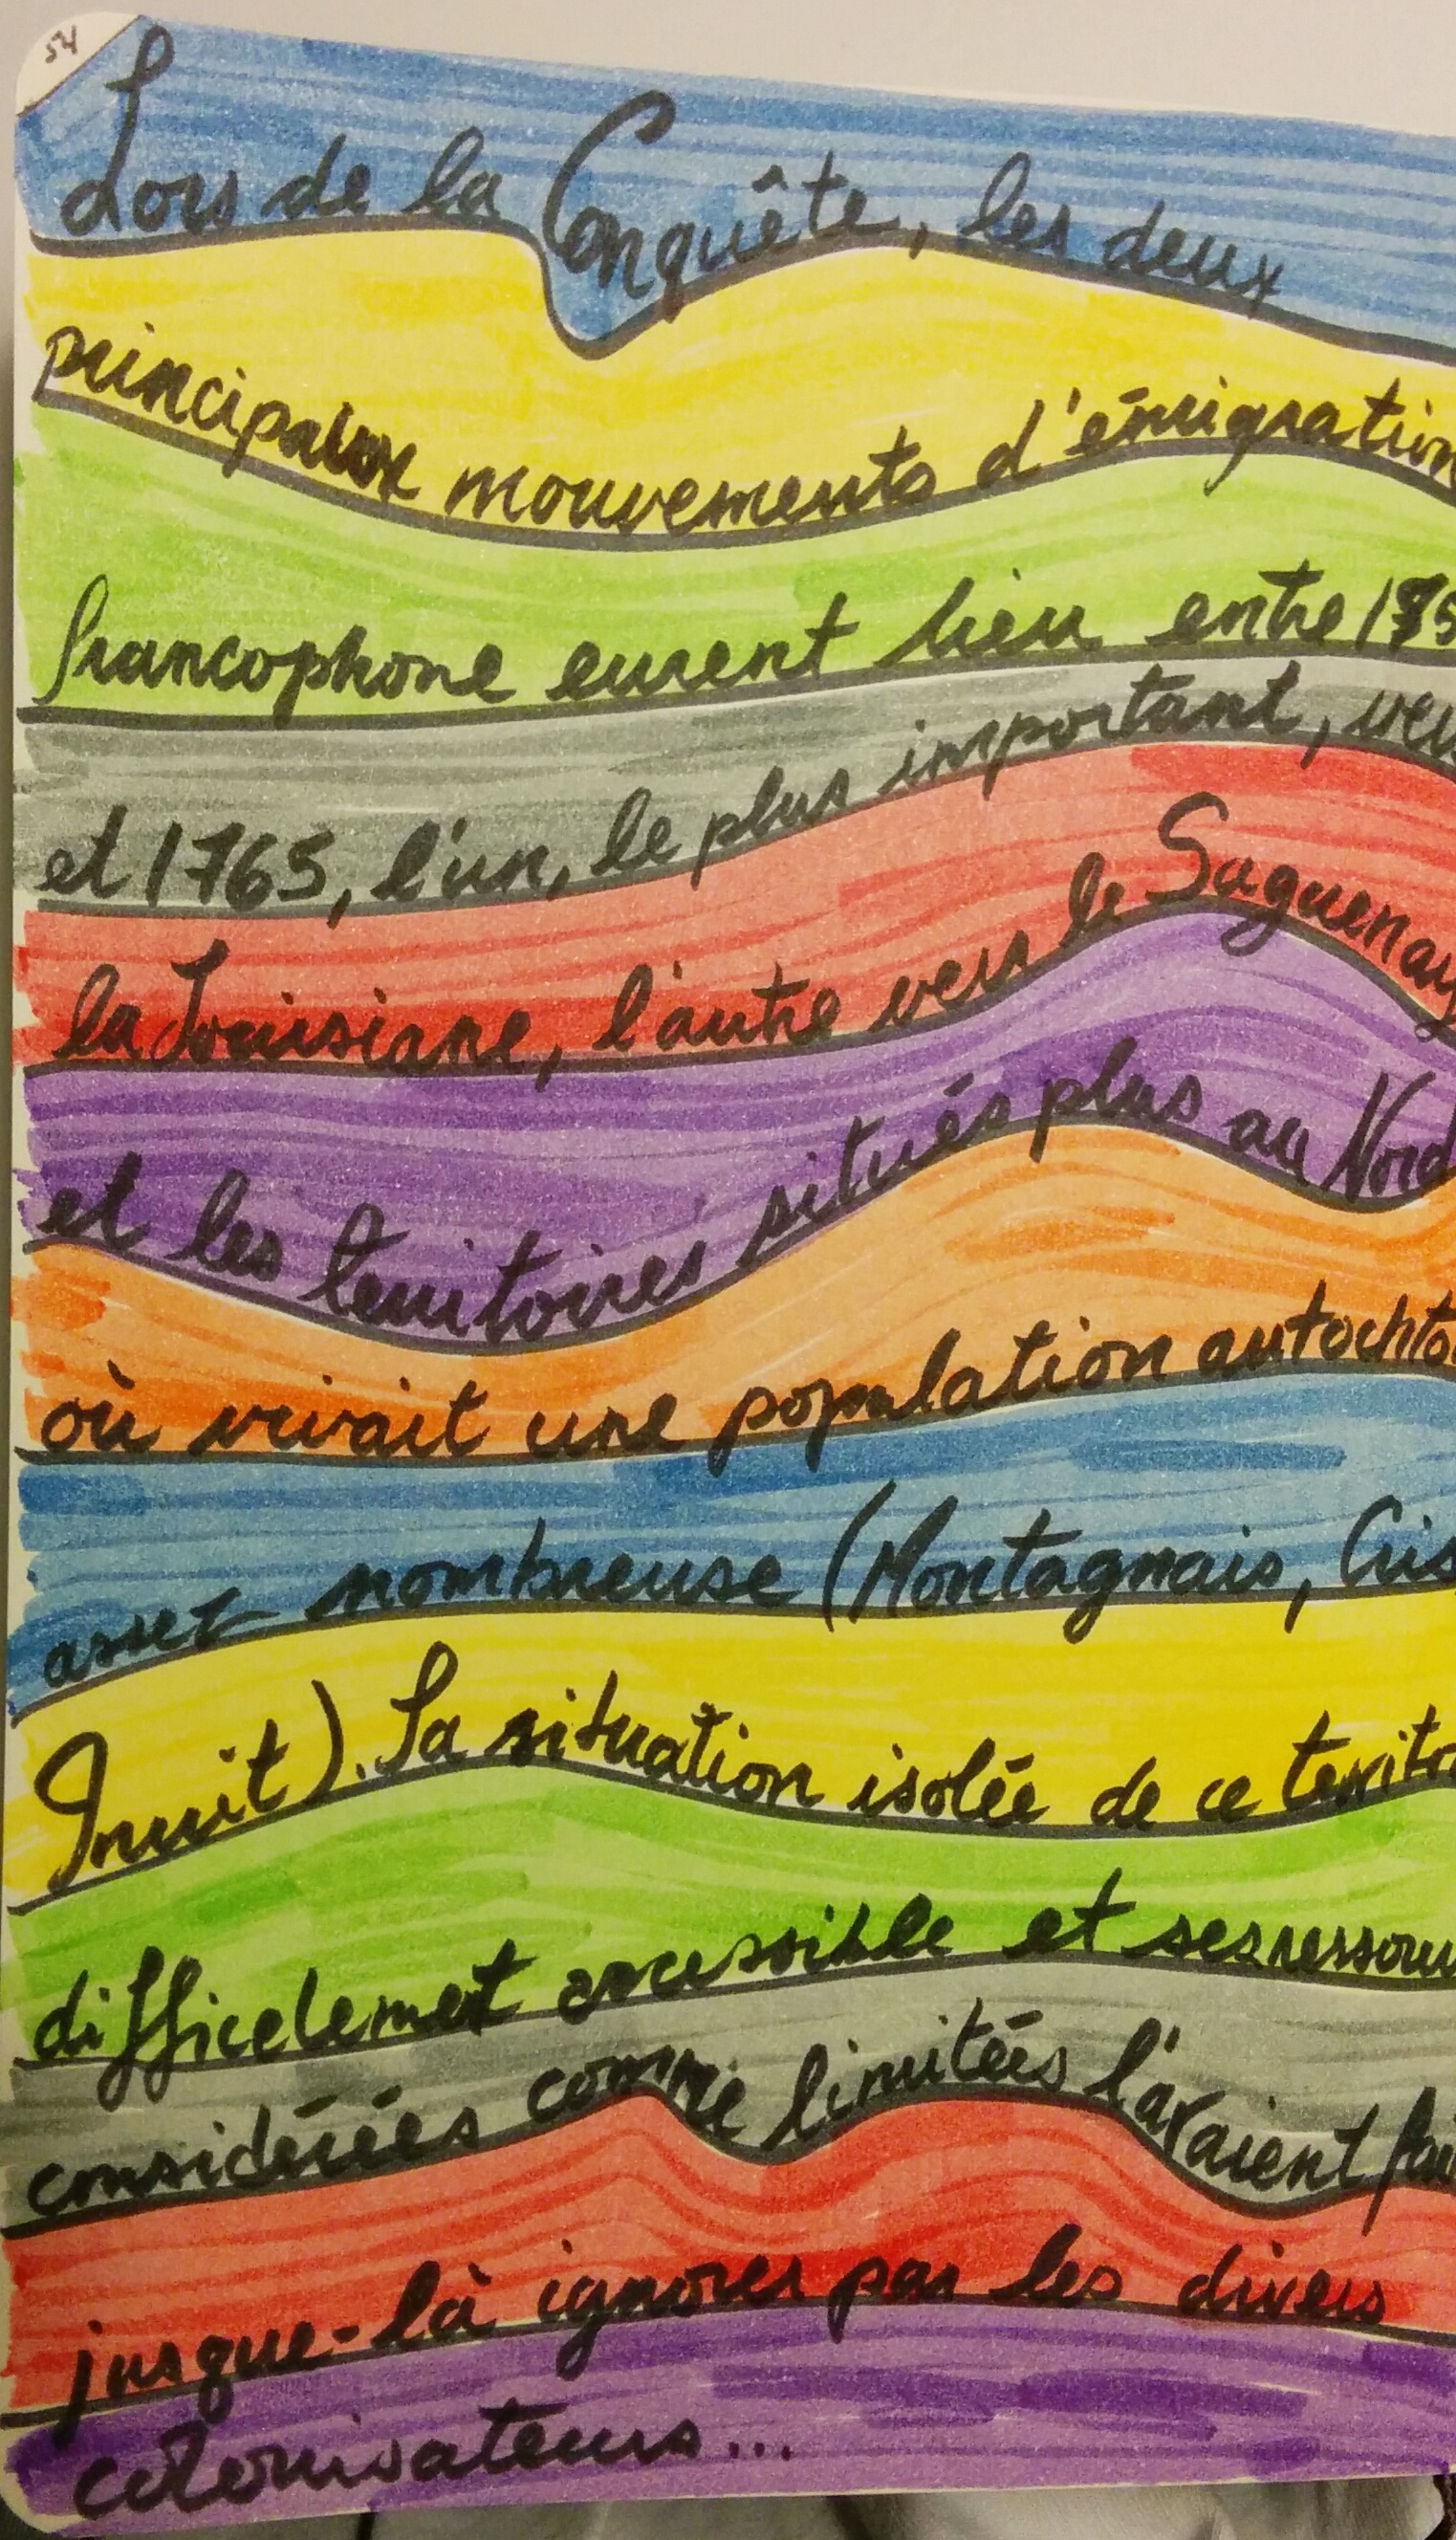 54
Lors de la Conquête, les deux
principaux mouvements d'émigration
francophone eurent lieu entre 175
et 1765, l'un, le plus important, vers
la Louisiane, l'autre vers le Saguenay
et les territoires situés plus au Nord
où vivait une population autochto
assez nombreuse (Montagnais, Cris
Inuit). Sa situation isolée de ce territo
difficelement accessible et ses ressour
considérées comme limitées l'avaient fai
jusque-là ignorer par les divers
colonisateurs...